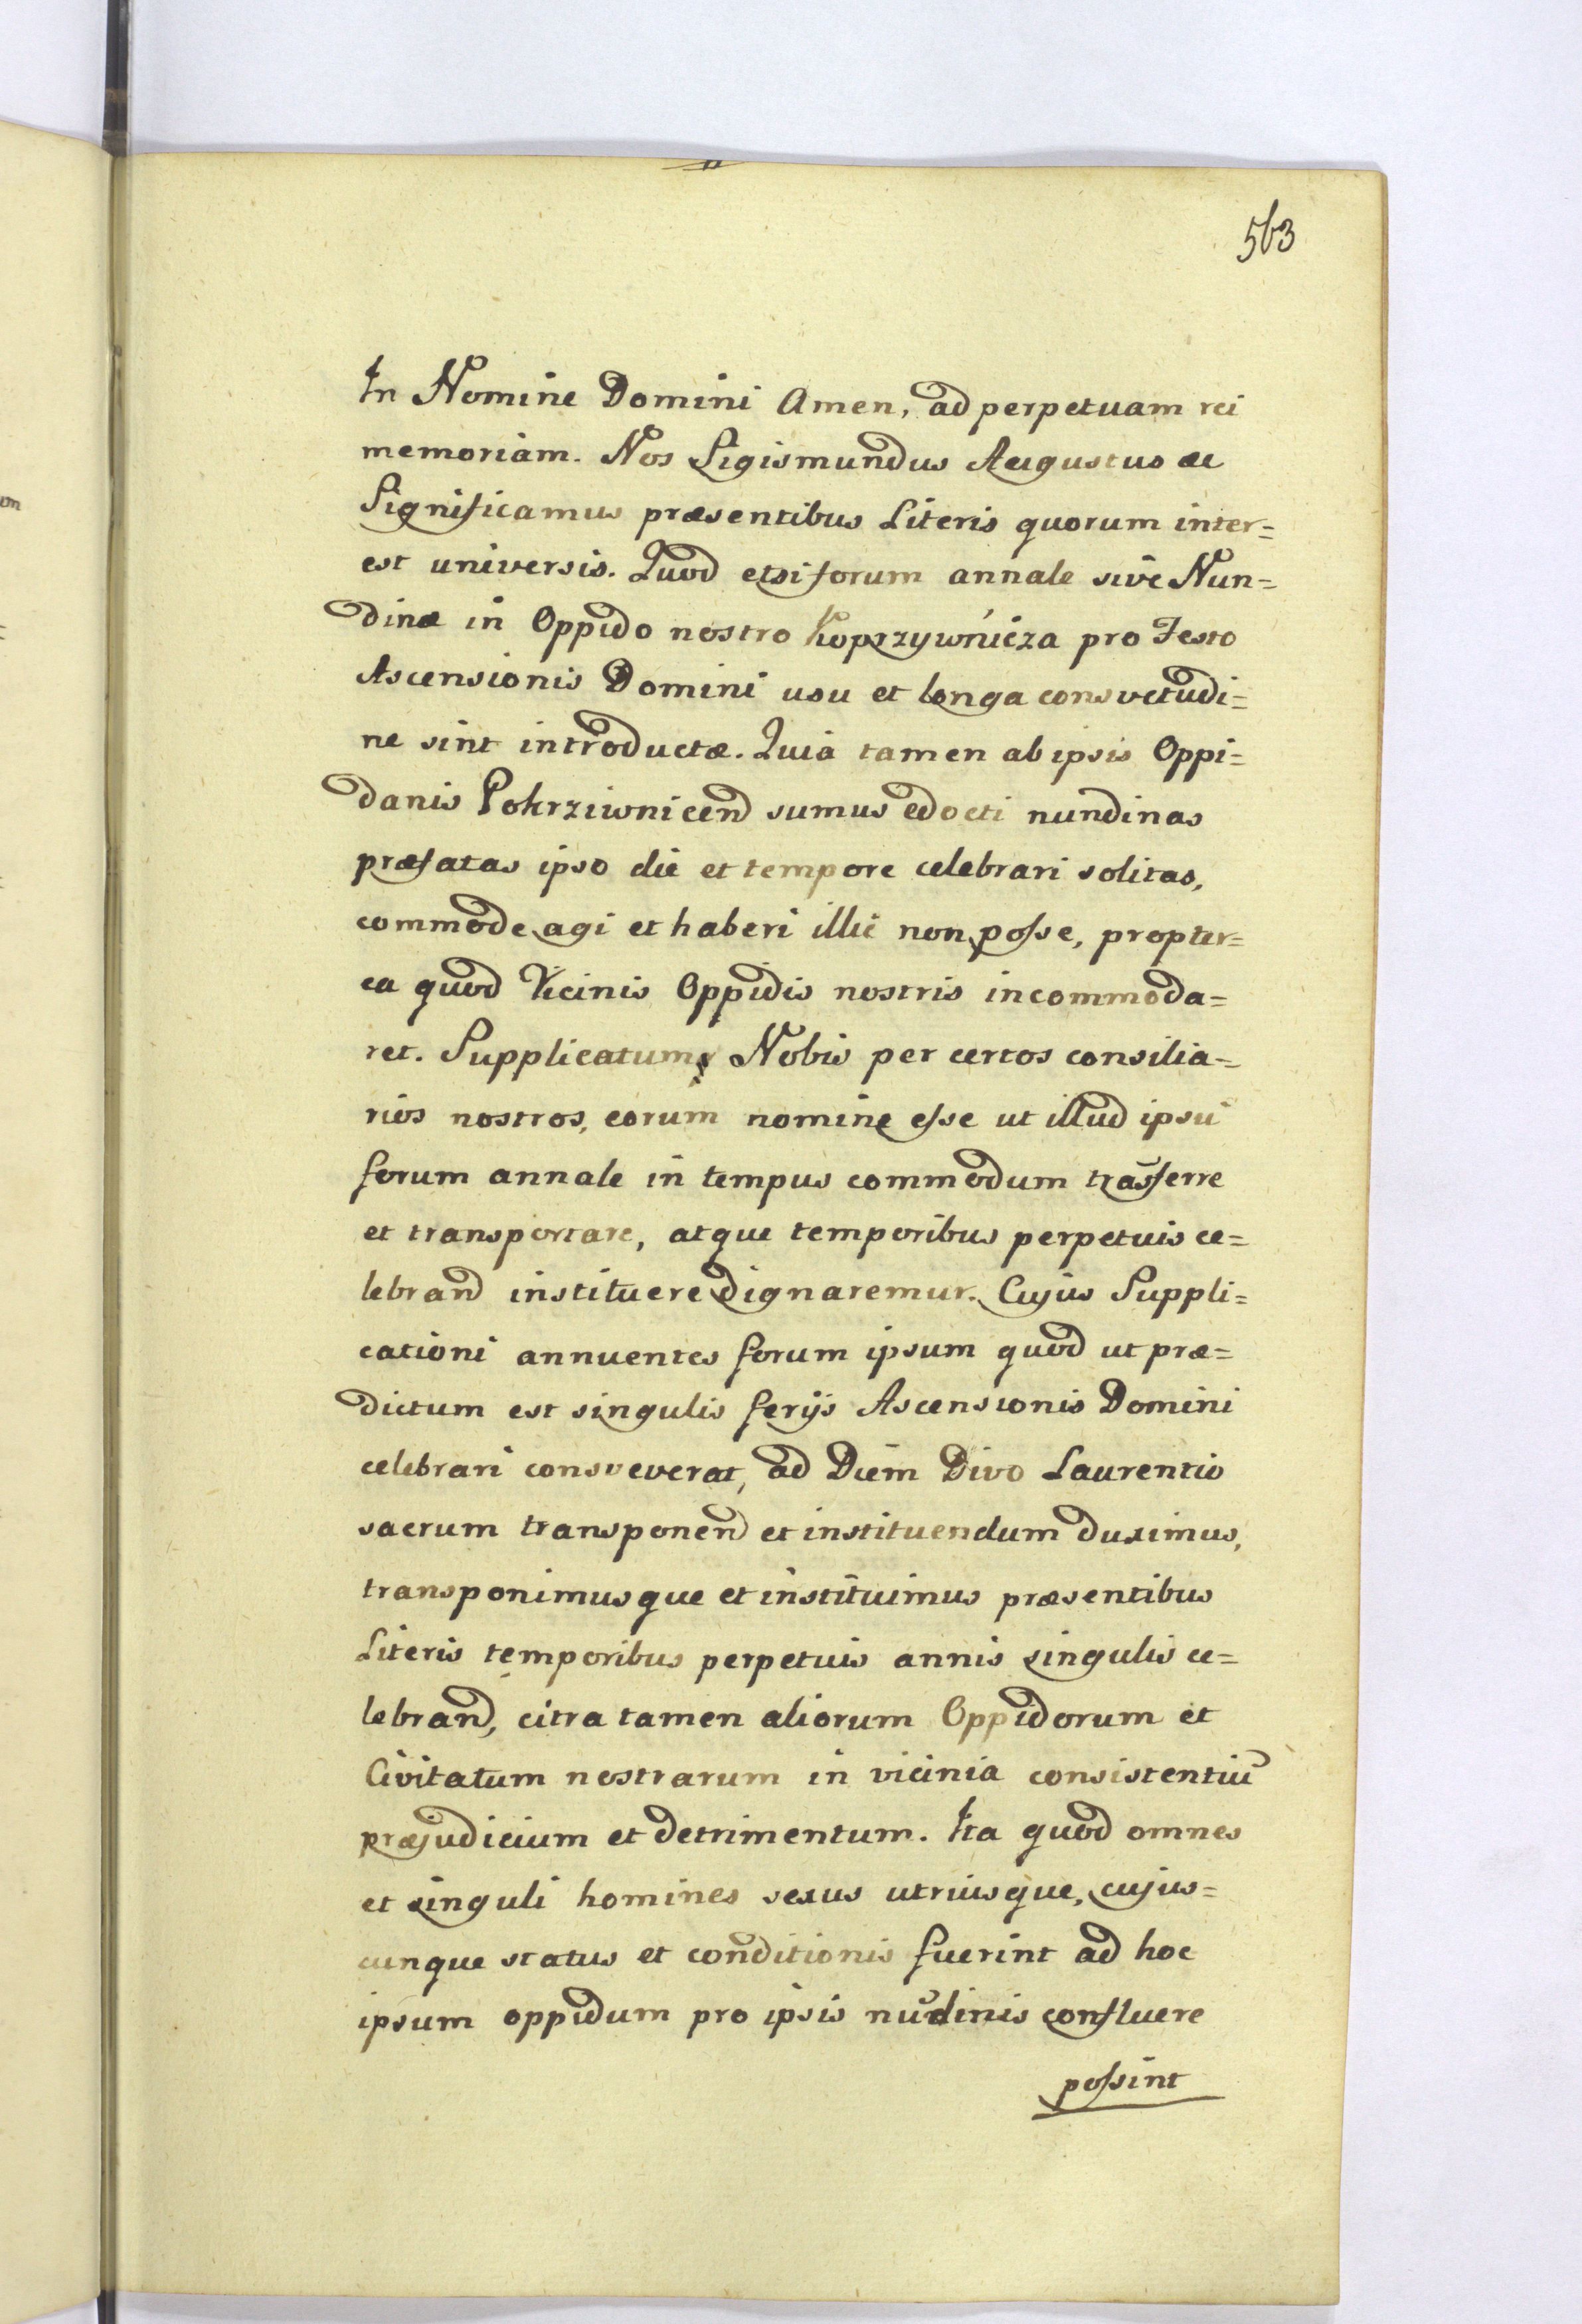 563
In Nomine Domini Amen, ad perpetuam rei
memoriam. Nos Sigismundus Augustus &c
Significamus præsentibus Literis quorum inter=
est universis. Quod etsi forum annale sive Nun=
dinæ in Oppido nostro Koprzywnicza pro Festo
Ascensionis Domini usu et longa consvetudi=
ne sint introductæ. Quia tamen ab ipsis Oppi=
danis Pokrziwnicend sumus edocti nundinas
præfatas ipso die et tempore celebrari solitas,
commode agi et haberi illic non posse, propter=
ea quod Vicinis Oppidis nostris incommoda=
ret. Supplicatum Nobis per certos consilia=
rios nostros, eorum nomine esse ut illud ipsū
forum annale in tempus commodum trāsferre
et transportare, atque temporibus perpetuis ce=
lebrand instituere dignaremur. Cujus Suppli=
cationi annuentes forum ipsum quod ut præ=
dictum est singulis ferijs Ascensionis Domini
celebrari consveverat, ad Diem Divo Laurentio
sacrum transponend et instituendum duximus,
transponimusque et instituimus præsentibus
Literis temporibus perpetuis annis singulis ce=
lebrand, citra tamen aliorum Oppidorum et
Civitatum nostrarum in vicinia consistentiū
præjudicium et detrimentum. Ita quod omnes
et singuli homines sexus utriusque, cujus=
cunque status et conditionis fuerint ad hoc
ipsum oppidum pro ipsis nūdinis confluere
possint